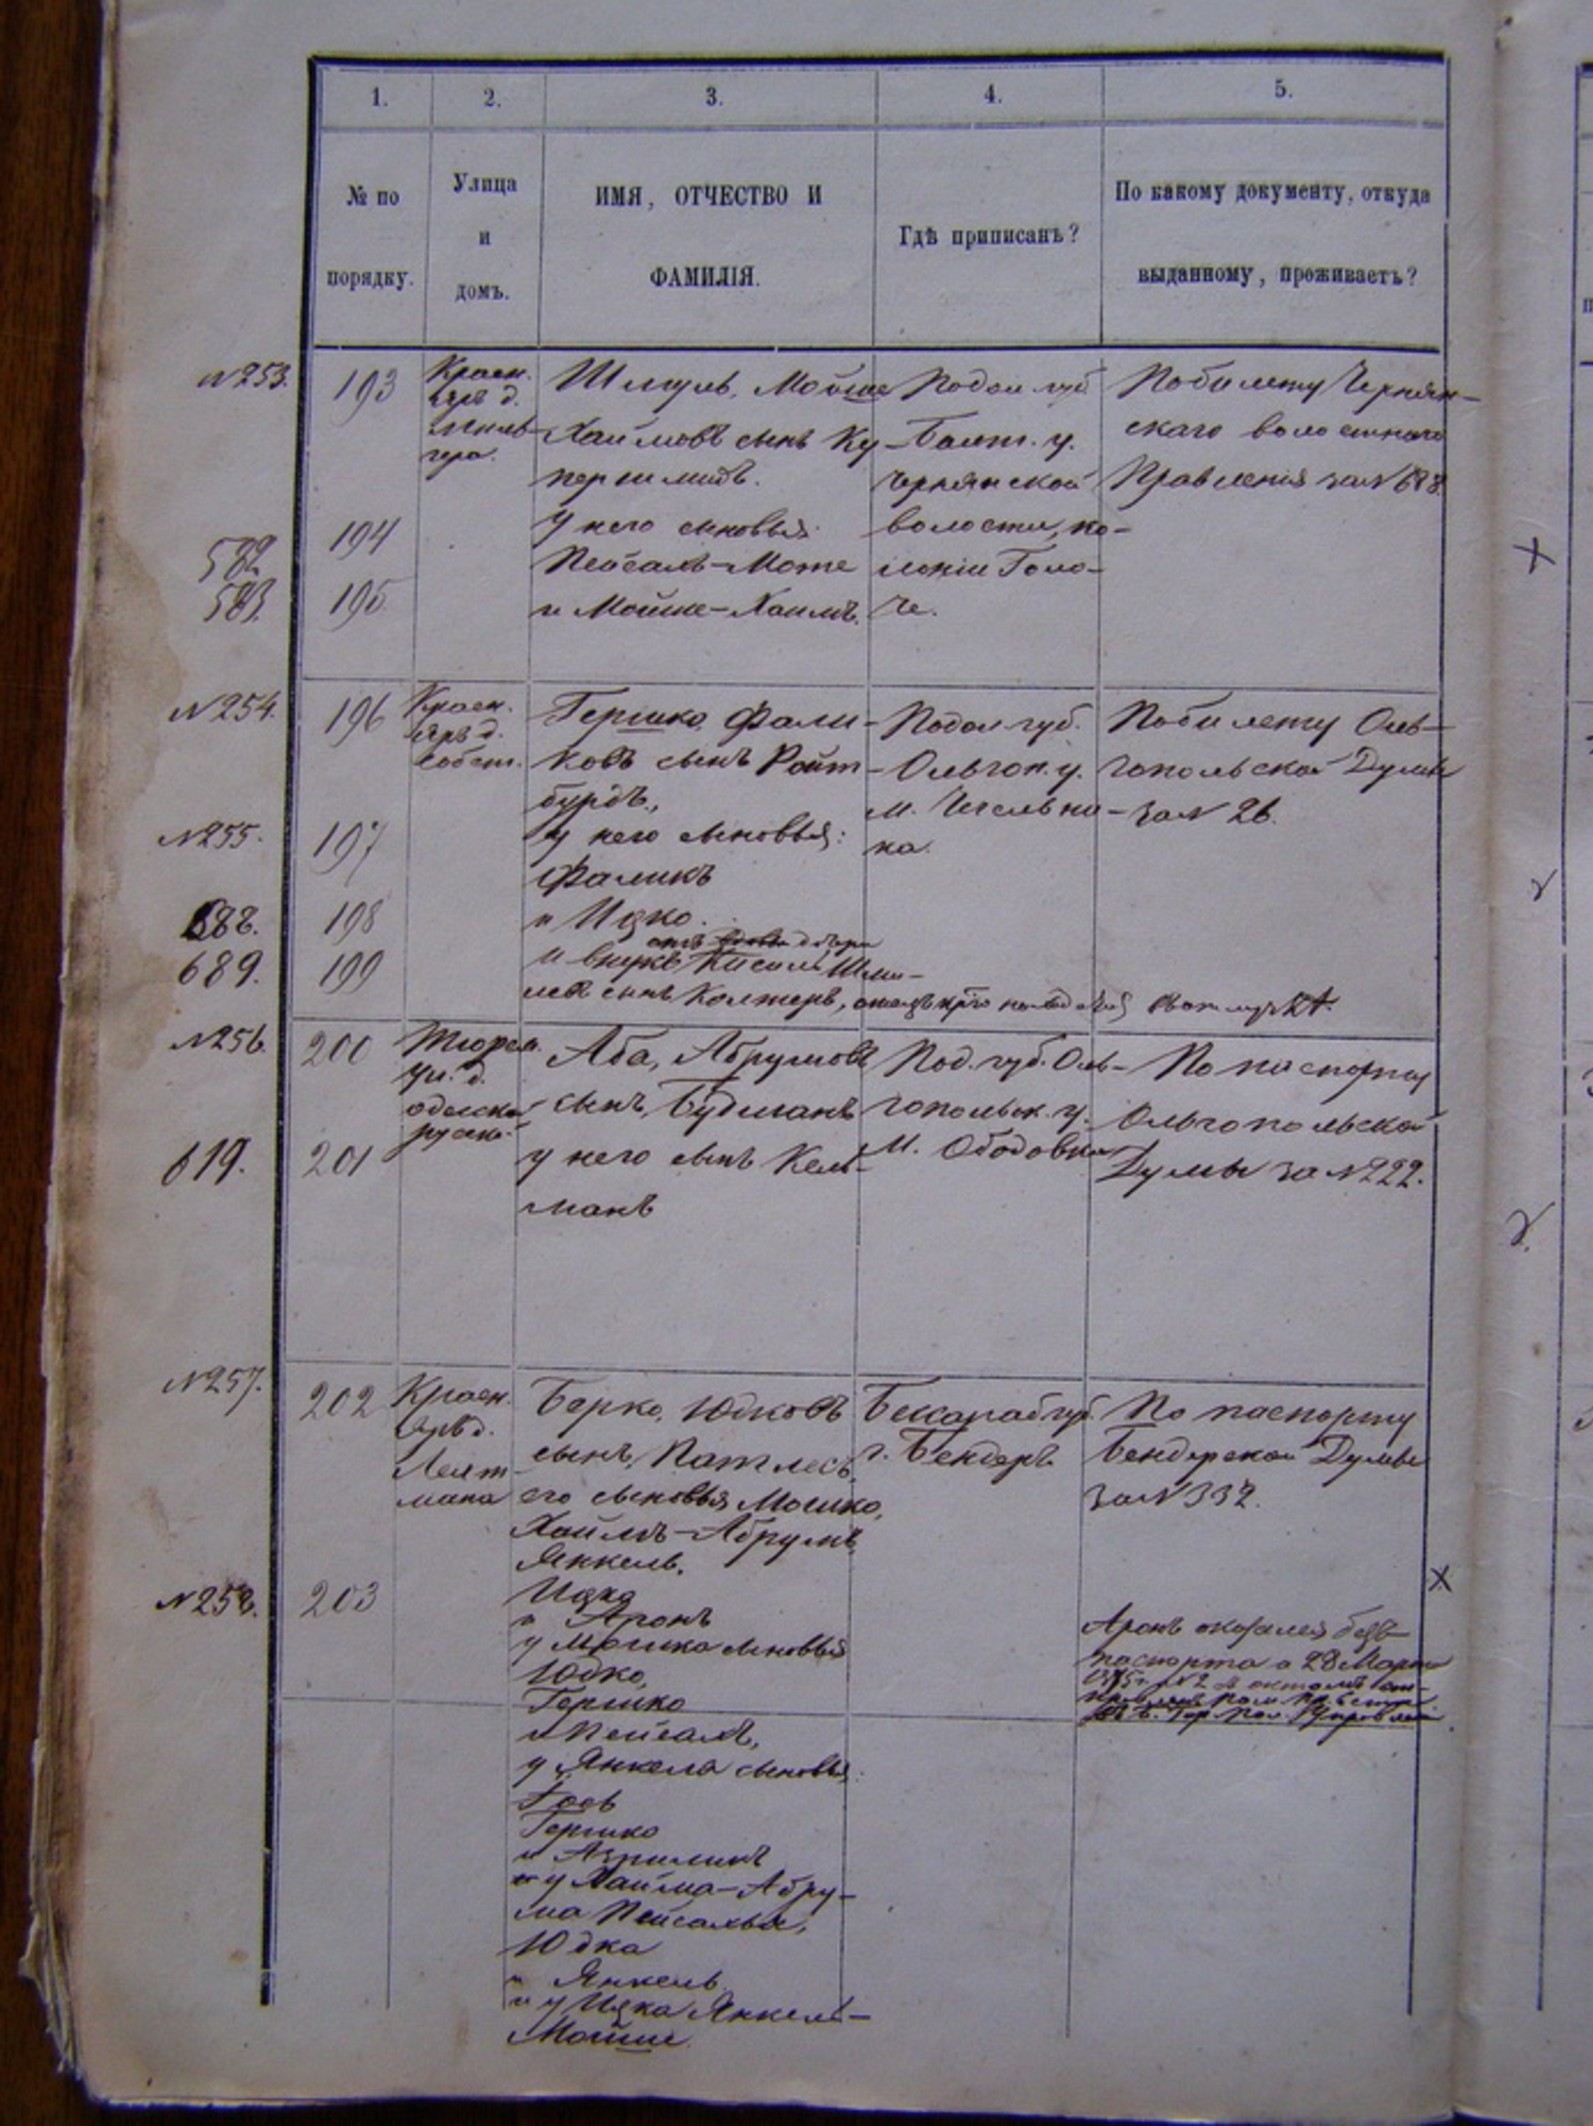 1.
2.
3.
4.
5.
№ по
порядку.
Улица
и
домъ.
ИМЯ, ОТЧЕСТВО И
ФАМИЛІЯ.
Гдѣ приписанъ?
По какому документу, откуда
выданному, проживаетъ?
№253.
193
Красн.
яръ д.
Шмуль, Мойше
Хаимовъ сынъ Ку-
першмидъ.
Подол губ.
Балт. у.
Чернянской
волости, ко-
лоніи Голо-
че.
По билету Чернян-
скаго волостнаго
Правленія за №688.
582
194
У него сыновья:
Пейсахъ-Мотe
583.
195
и Мойше-Хаимъ.
№254.
196
Красн.
яръ д.
собст.
Гершко, Фали-
ковъ сынъ Ройт-
бурдъ,
Подол губ.
Ольгоп. у.
м. Чечельни-
ка.
По билету Оль-
гопольской Думы
за № 26.
№255.
197
у него сыновья:
Фаликъ
688.
198
и Ицко.
689.
199
и внукъ Кисель Шму-
левъ сынъ Колтеръ,
№256.
200
Тюрем.
ул. д.
Аба, Абрумовъ
сынъ, Будманъ
Под. губ. Оль-
гопольск. у.
м. Ободовка
По паспорту
Ольгопольской
Думы за №222.
619.
201
у него сынъ Кель-
манъ
№257.
202
Красн.
яръ д.
Лейт-
мана
Берко, Юдковъ
сынъ, Патлесъ,
его сыновья Мошко,
Хаимъ-Абрумъ,
Янкель,
Бессараб губ.
г. Бендеръ
По паспорту
Бендерской Думы
за № 337.
№258.
203
Ицко
и Аронъ
у Мошка сыновья
Юдко,
Гершко
и Пейсахъ,
у Янкеля сыновья:
Гершко
и Азриликъ
и у Хаима-Абру-
ма Пейсахъ,
Юдка
и Янкель
и у Ицка Янкель-
Мойше.
Аронъ оказался безъ
паспорта а 28 Марта